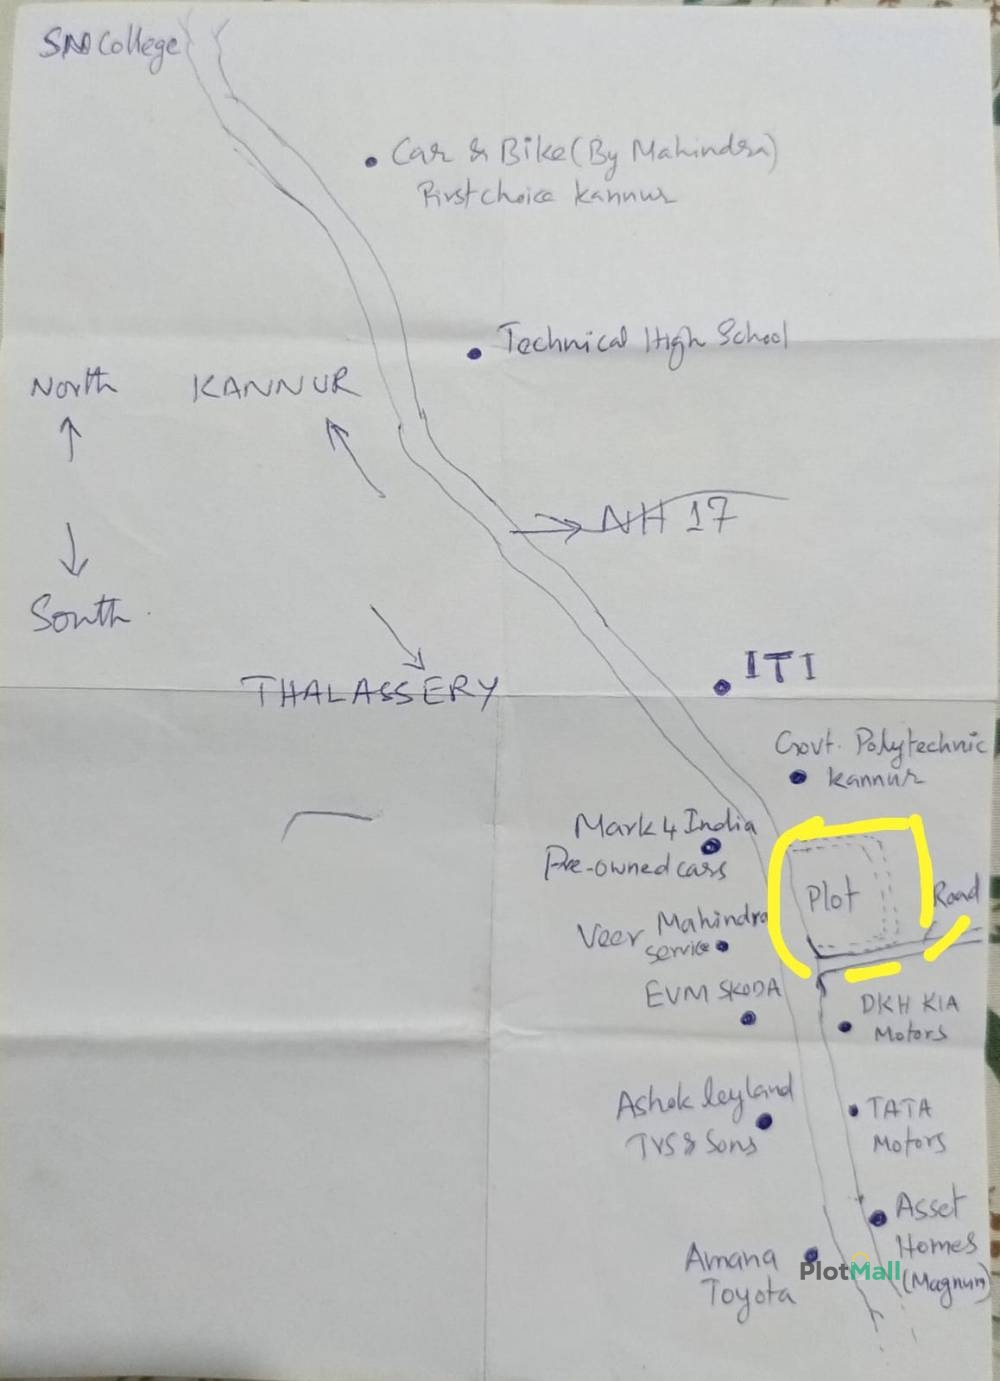 SN College
Car & Bike (By Mahindra)
First choice Kannur
Technical High School
North
KANNUR
NH 17
South
ITI
THALASSERY
Govt. Polytechnic
Kannur
Mark 4 India
Pre-owned cars
Plot
Road
Veer Mahindra
Service
EVM SKODA
DKH KIA
Motors
Ashok leyland
TVS & Sons
TATA
Motors
Asset
Homes
(Magnum)
Amana
Toyota
PlotMall